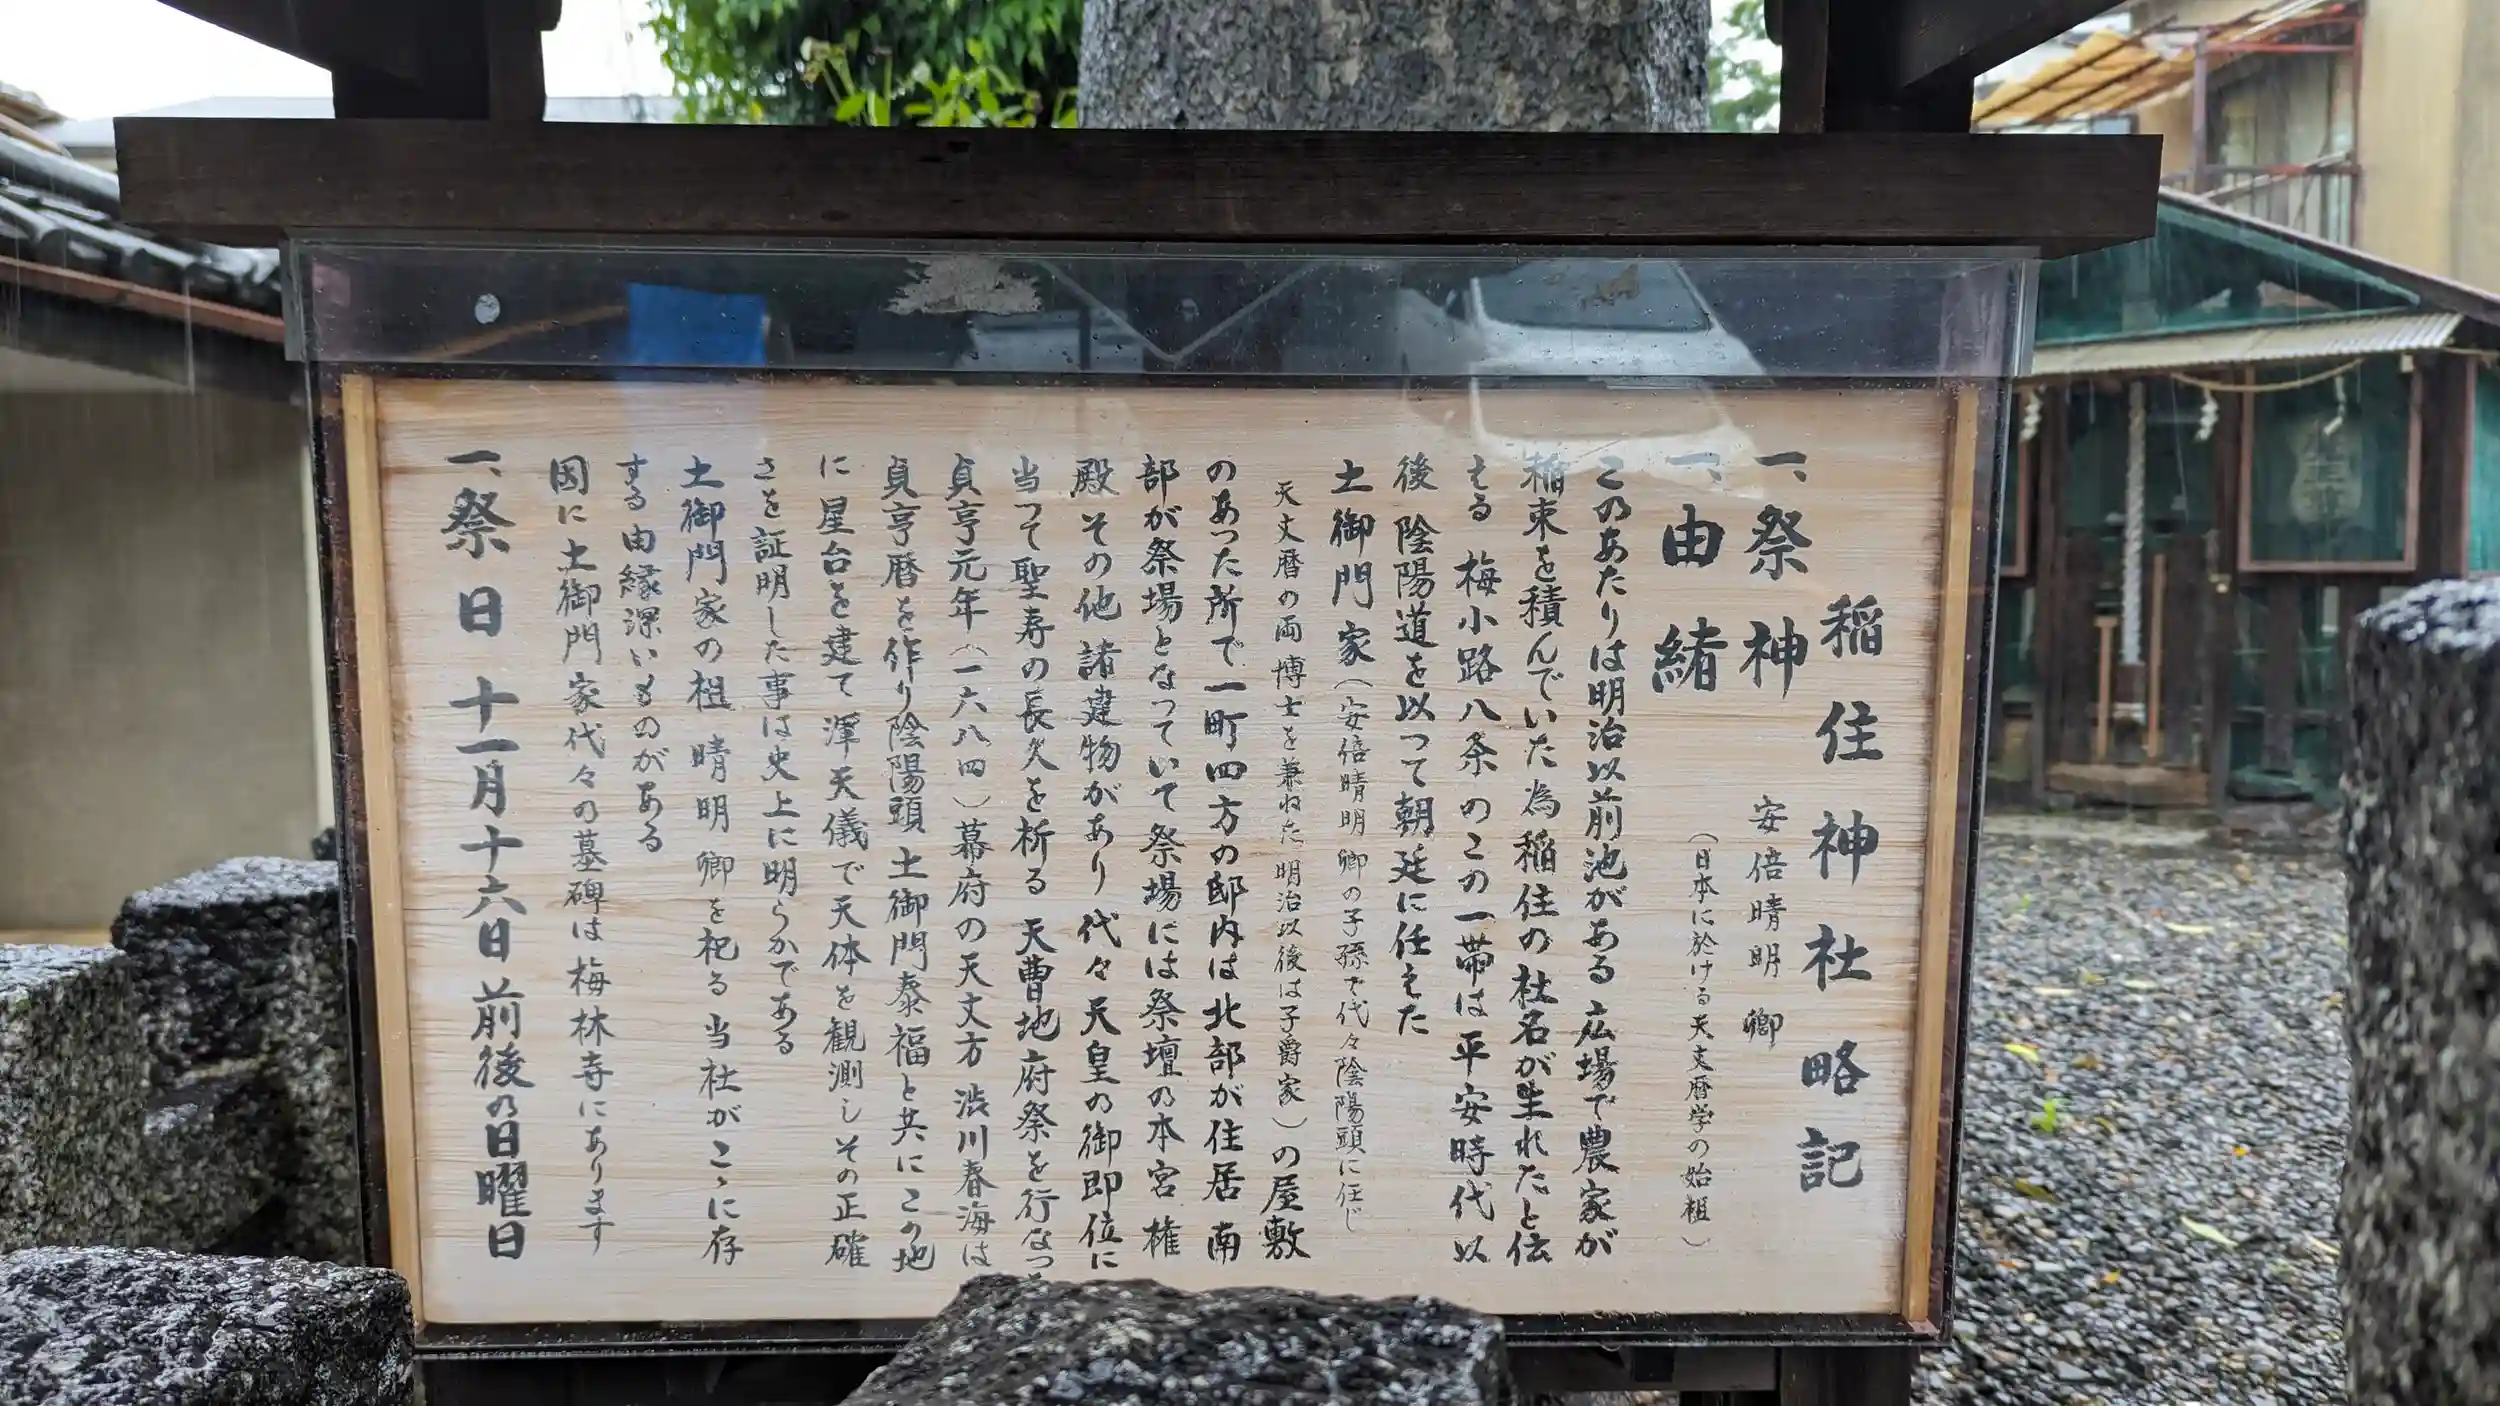 稲住神社略記
一、祭神 安倍晴明 卿
一、由緒 （日本に於ける天文暦学の始祖）
このあたりは明治以前池がある 広場で農家が
稲束を積んでいた為稲住の社名が生れたと伝
える 梅小路八条のこの一帯は平安時代以
後 陰陽道を以って朝廷に任えた
土御門家（安倍晴明 卿の子孫で代々陰陽頭に任じ
天文暦の両 博士を兼ねた 明治以後は子爵家）の屋敷
のあった所で一町四方の邸内は北部が住居 南
部が祭場となっていて祭場には祭壇の本宮 権
殿 その他 諸建物があり 代々天皇の御即位に
当って聖寿の長久を祈る 天曹地府祭を行なっ
貞亨元年（一六八四）幕府の天文方 渋川春海は
貞亨暦を作り陰陽頭 土御門泰福と共にこの地
に星台を建て渾天儀で天体を観測しその正確
さを証明した事は史上に明らかである
土御門家の祖 晴明 卿を祀る当社がこゝに存
する由縁深いものがある
因に土御門家代々の墓碑は梅林寺にあります
一、祭日 十一月十六日前後の日曜日